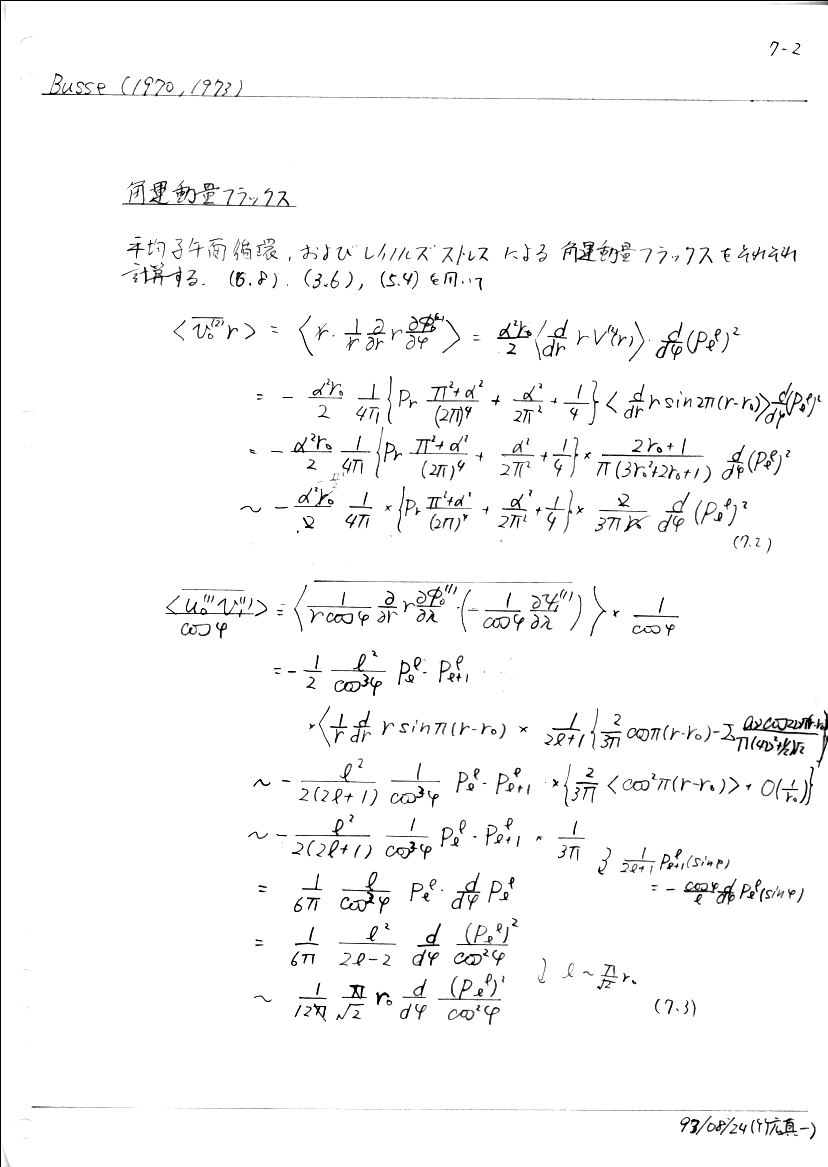 7-2
Busse (1970, 1973)
角運動量フラックス
平均子午面循環, およびレイノルズストレス による 角運動量フラックスをそれぞれ
計算する. (5.8), (3.6), (5.4) を用いて
< \overline{v_0^{(2)}} r > = < r · \frac{1}{r} \frac{∂}{∂r} r \frac{∂Φ_0^{(2)}}{∂φ} > = \frac{α^2 r_0}{2} < \frac{d}{dr} r V^{(2)}(r) > · \frac{d}{dφ} (P_ℓ^ℓ)^2
= - \frac{α^2 r_0}{2} \frac{1}{4π} { Pr \frac{π^2+α^2}{(2π)^4} + \frac{α^2}{2π^2} + \frac{1}{4} } < \frac{d}{dr} r sin 2π(r-r_0) > \frac{d}{dφ} (P_ℓ^ℓ)^2
= - \frac{α^2 r_0}{2} \frac{1}{4π} { Pr \frac{π^2+α^2}{(2π)^4} + \frac{α^2}{2π^2} + \frac{1}{4} } × \frac{2r_0+1}{π(3r_0^2+2r_0+1)} \frac{d}{dφ} (P_ℓ^ℓ)^2
~ - \frac{α^2 r_0}{2} \frac{1}{4π} × { Pr \frac{π^2+α^2}{(2π)^4} + \frac{α^2}{2π^2} + \frac{1}{4} } × \frac{2}{3π r_0} \frac{d}{dφ} (P_ℓ^ℓ)^2
(7.2)
\frac{< \overline{u_0^{(1)} v_1^{(1)}} >}{cos φ} = < \overline{ \frac{1}{r cos φ} \frac{∂}{∂r} r \frac{∂Φ_0^{(1)}}{∂λ} · ( - \frac{1}{cos φ} \frac{∂Ψ_1^{(1)}}{∂λ} ) } > × \frac{1}{cos φ}
= - \frac{1}{2} \frac{ℓ^2}{cos^3 φ} P_ℓ^ℓ · P_{ℓ+1}^ℓ
× < \frac{1}{r} \frac{d}{dr} r sin π(r-r_0) × \frac{1}{2ℓ+1} { \frac{2}{3π} cos π(r-r_0) - Σ
~ - \frac{ℓ^2}{2(2ℓ+1)} \frac{1}{cos^3 φ} P_ℓ^ℓ · P_{ℓ+1}^ℓ × { \frac{2}{3π} < cos^2 π(r-r_0) > + O(\frac{1}{r_0}) }
~ - \frac{ℓ^2}{2(2ℓ+1)} \frac{1}{cos^3 φ} P_ℓ^ℓ · P_{ℓ+1}^ℓ × \frac{1}{3π}
\frac{1}{2ℓ+1} P_{ℓ+1}^ℓ (sin φ)
= \frac{1}{6π} \frac{ℓ}{cos^2 φ} P_ℓ^ℓ · \frac{d}{dφ} P_ℓ^ℓ
= - \frac{cos φ}{ℓ} \frac{d}{dφ} P_ℓ^ℓ (sin φ)
= \frac{1}{6π} \frac{ℓ^2}{2ℓ-2} \frac{d}{dφ} \frac{(P_ℓ^ℓ)^2}{cos^2 φ}
ℓ ~ \frac{π}{√2} r_0
~ \frac{1}{12π} \frac{π}{√2} r_0 \frac{d}{dφ} \frac{(P_ℓ^ℓ)^2}{cos^2 φ}
(7.3)
93/08/24 (竹広真一)